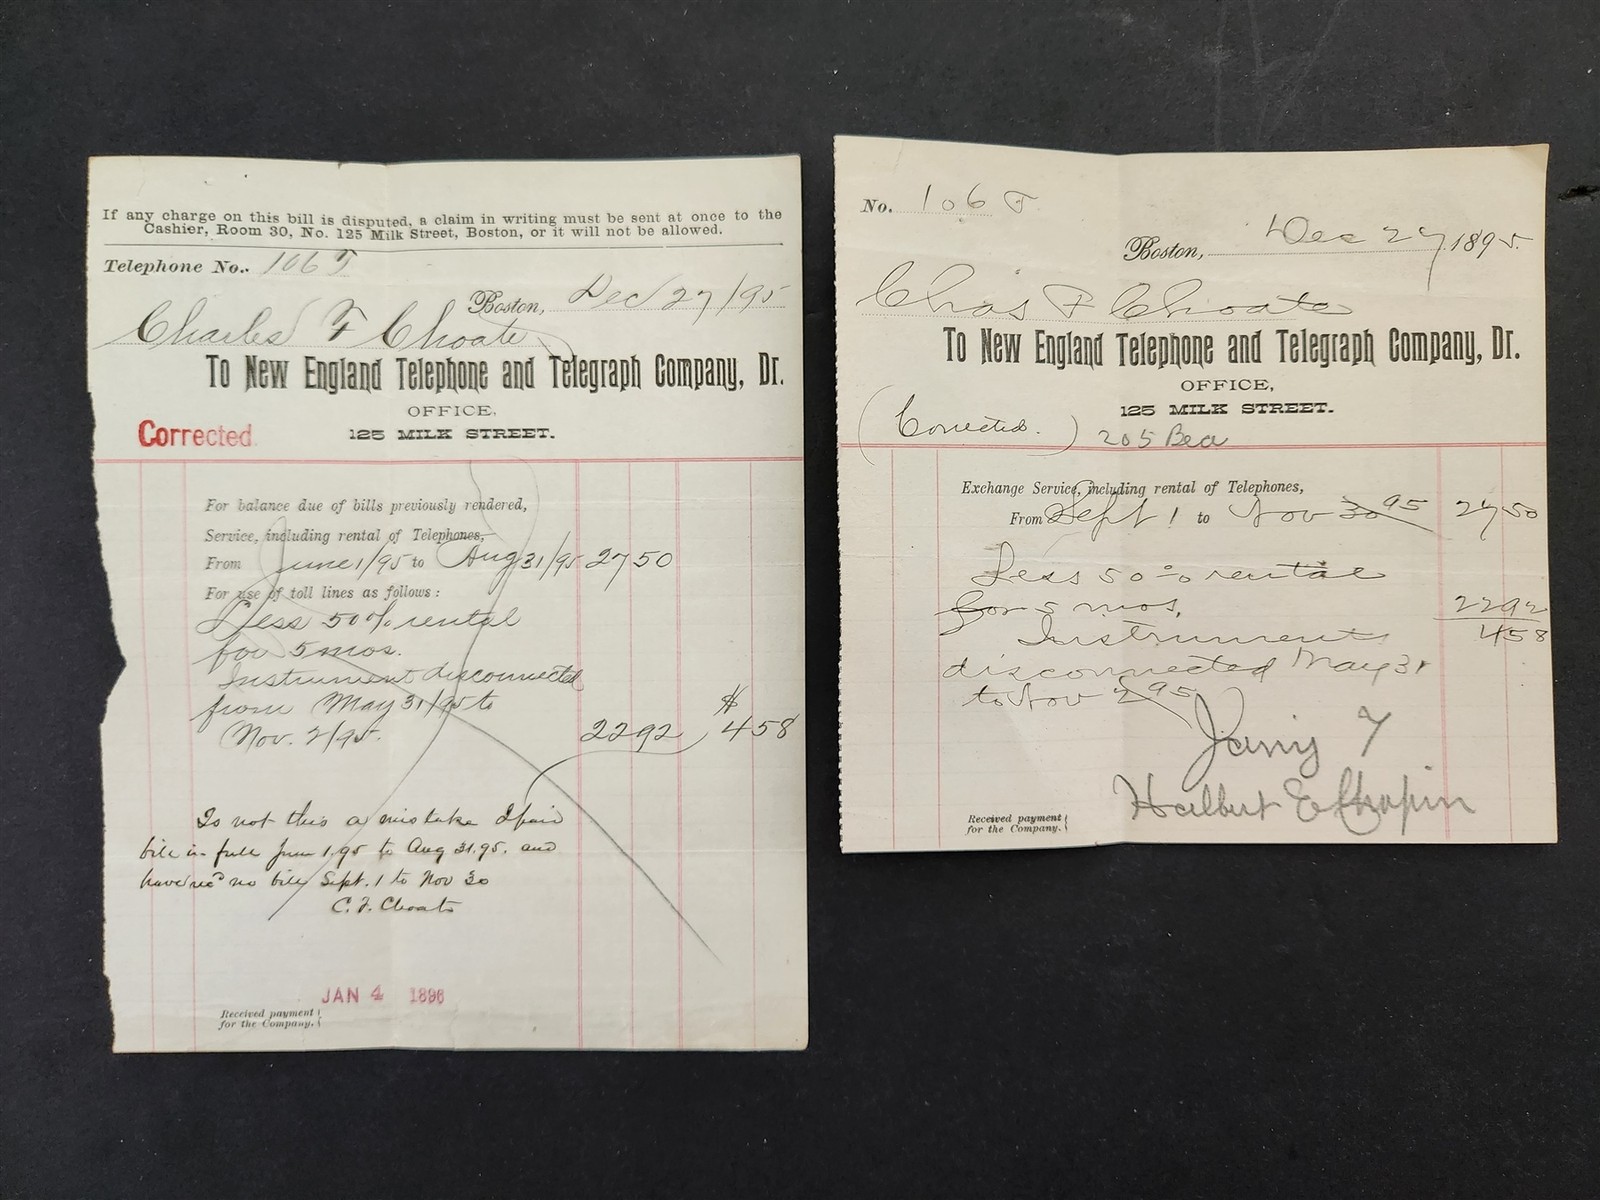 If any charge on this bill is disputed, a claim in writing must be sent at once to the
Cashier, Room 30, No. 125 Milk Street, Boston, or it will not be allowed.
Telephone No. 106 T
Boston, Dec 27/95
Charles F Choate
To New England Telephone and Telegraph Company, Dr.
OFFICE,
Corrected 125 MILK STREET.
For balance due of bills previously rendered,
Service, including rental of Telephones,
From June 1/95 to Aug 31/95 27 50
For use of toll lines as follows:
Less 50% rental
for 5 mos.
Instrument disconnected
from May 31/95 to $
Nov. 2/95. 22 92 4 58
Is not this a mistake I paid
bill in full June 1.95 to Aug 31.95. and
have rec'd no bill Sept. 1 to Nov 30
C. F. Choate
JAN 4 1896
Received payment
for the Company.
No. 106 T
Boston, Dec 27 1895.
Chas F Choate
To New England Telephone and Telegraph Company, Dr.
OFFICE,
125 MILK STREET.
(Corrected.) 205 Bea
Exchange Service, including rental of Telephones,
From Sept 1 to Nov 30 95 27 50
Less 50% rental
for 5 mos. 22 92
Instrument 4 58
disconnected May 31
to Nov 2 95
Jany 7
Halbert E Chapin
Received payment
for the Company.